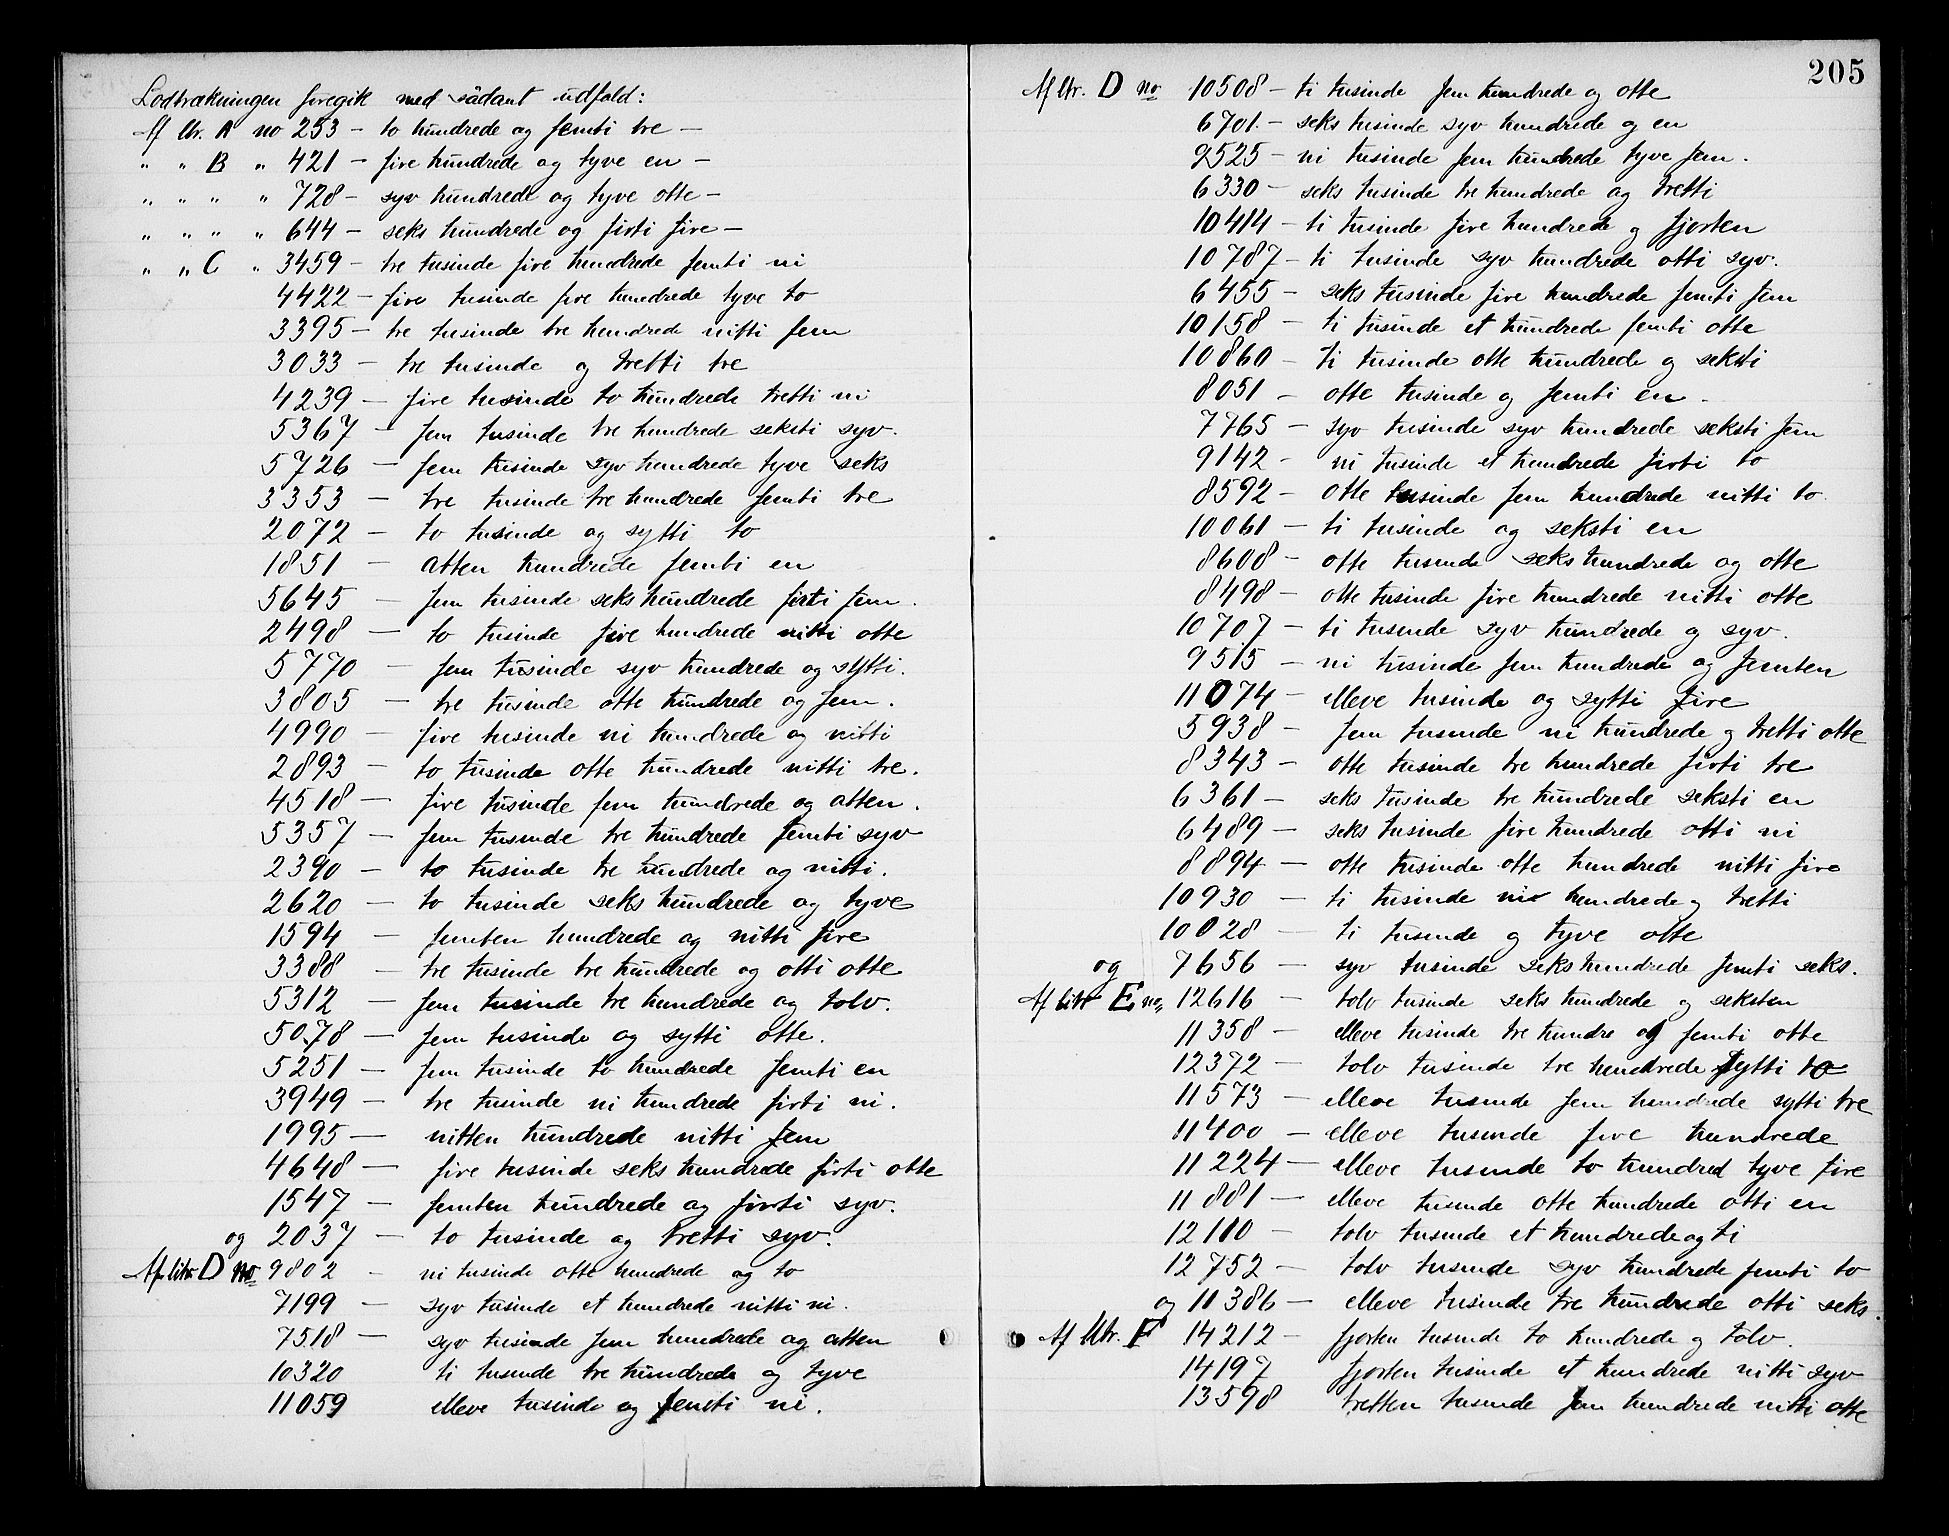 Lodtrækningen foregik med sådant udfald:
Af ltr. A no 253 – to hundrede og femti tre –
" " B " 421 – fire hundrede og tyve en –
" " " " 728 – syv hundrede og tyve otte –
" " " " 644 – seks hundrede og firti fire –
" " C " 3459 – tre tusinde fire hundrede femti ni
4422 – fire tusinde fire hundrede tyve to
3395 – tre tusinde tre hundrede nitti fem
3033 – tre tusinde og tretti tre
4239 – fire tusinde to hundrede tretti ni
5367 – fem tusinde tre hundrede seksti syv.
5726 – fem tusinde syv hundrede tyve seks
3353 – tre tusinde tre hundrede femti tre
2072 – to tusinde og sytti to
1851 – atten hundrede femti en
5645 – fem tusinde seks hundrede firti fem.
2498 – to tusinde fire hundrede nitti otte
5770 – fem tusinde syv hundrede og sytti.
3805 – tre tusinde otte hundrede og fem.
4990 – fire tusinde ni hundrede og nitti
2893 – to tusinde otte hundrede nitti tre.
4518 – fire tusinde fem hundrede og atten.
5357 – fem tusinde tre hundrede femti syv
2390 – to tusinde tre hundrede og nitti.
2620 – to tusinde seks hundrede og tyve
1594 – femten hundrede og nitti fire
3388 – tre tusinde tre hundrede og otti otte
5312 – fem tusinde tre hundrede og tolv.
5078 – fem tusinde og sytti otte.
5251 – fem tusinde to hundrede femti en
3949 – tre tusinde ni hundrede firti ni.
1995 – nitten hundrede nitti fem
4648 – fire tusinde seks hundrede firti otte
1547 – femten hundrede og firti syv.
og 2037 – to tusinde og tretti syv.
Af litr D no 9802 – ni tusinde otte hundrede og to
7199 – syv tusinde et hundrede nitti ni.
7518 – syv tusinde fem hundrede og atten
10320 ti tusinde tre hundrede og tyve
11059 elleve tusinde og femti ni.
205
Af ltr. D no 10508 – ti tusinde fem hundrede og otte
6701 – seks tusinde syv hundrede og en
9525 – ni tusinde fem hundrede tyve fem.
6330 – seks tusinde tre hundrede og tretti
10414 – ti tusinde fire hundrede og fjorten
10787 – ti tusinde syv hundrede otti syv.
6455 – seks tusinde fire hundrede femti fem
10158 – ti tusinde et hundrede femti otte
10860 – ti tusinde otte hundrede og seksti
8051 – otte tusinde og femti en –
7765 – syv tusinde syv hundrede seksti fem
9142 – ni tusinde et hundrede firti to
8592 – otte tusinde fem hundrede nitti to
10061 – ti tusinde og seksti en
8608 – otte tusinde seks hundrede og otte
8498 – otte tusinde fire hundrede nitti otte
10707 – ti tusinde syv hundrede og syv.
9515 – ni tusinde fem hundrede og femten
11074 – elleve tusinde og sytti fire
5938 – fem tusinde ni hundrede og tretti otte
8343 – otte tusinde tre hundrede firti tre
6361 – seks tusinde tre hundrede seksti en
6489 – seks tusinde fire hundrede otti ni
8894 – otte tusinde otte hundrede nitti fire
10930 – ti tusinde ni hundrede og tretti
10028 – ti tusinde og tyve otte
og 7656 – syv tusinde seks hundrede femti seks.
Af litr E no, 12616 – tolv tusinde seks hundrede og seksten
11358 – elleve tusinde tre hundre og femti otte
12372 – tolv tusinde tre hundrede sytti to
11573 – elleve tusinde fem hundrede sytti tre
11400 – elleve tusinde fire hundrede
11224 – elleve tusinde to hundred tyve fire
11881 – elleve tusinde otte hundrede otti en
12110 – tolv tusinde et hundrede og ti
12752 – tolv tusinde syv hundrede femti to
og 11386 – elleve tusinde tre hundrede otti seks.
Af ltr. F 14212 – fjorten tusinde to hundrede og tolv.
14197 fjorten tusinde et hundrede nitti syv
13598 tretten tusinde fem hundrede nitti otte